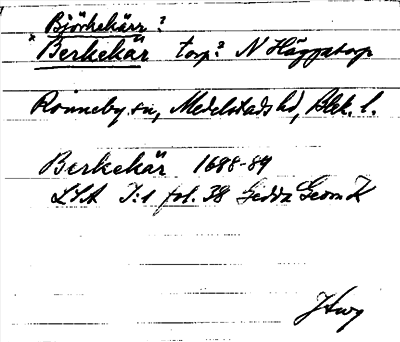 Björkekärr?
× Berkekär torp? N Häggatorp
Ronneby sn, Medelstads hd, Blek. l.
Berkekär 1688-89
LSA I:1 fol. 38 Gedda Geom K